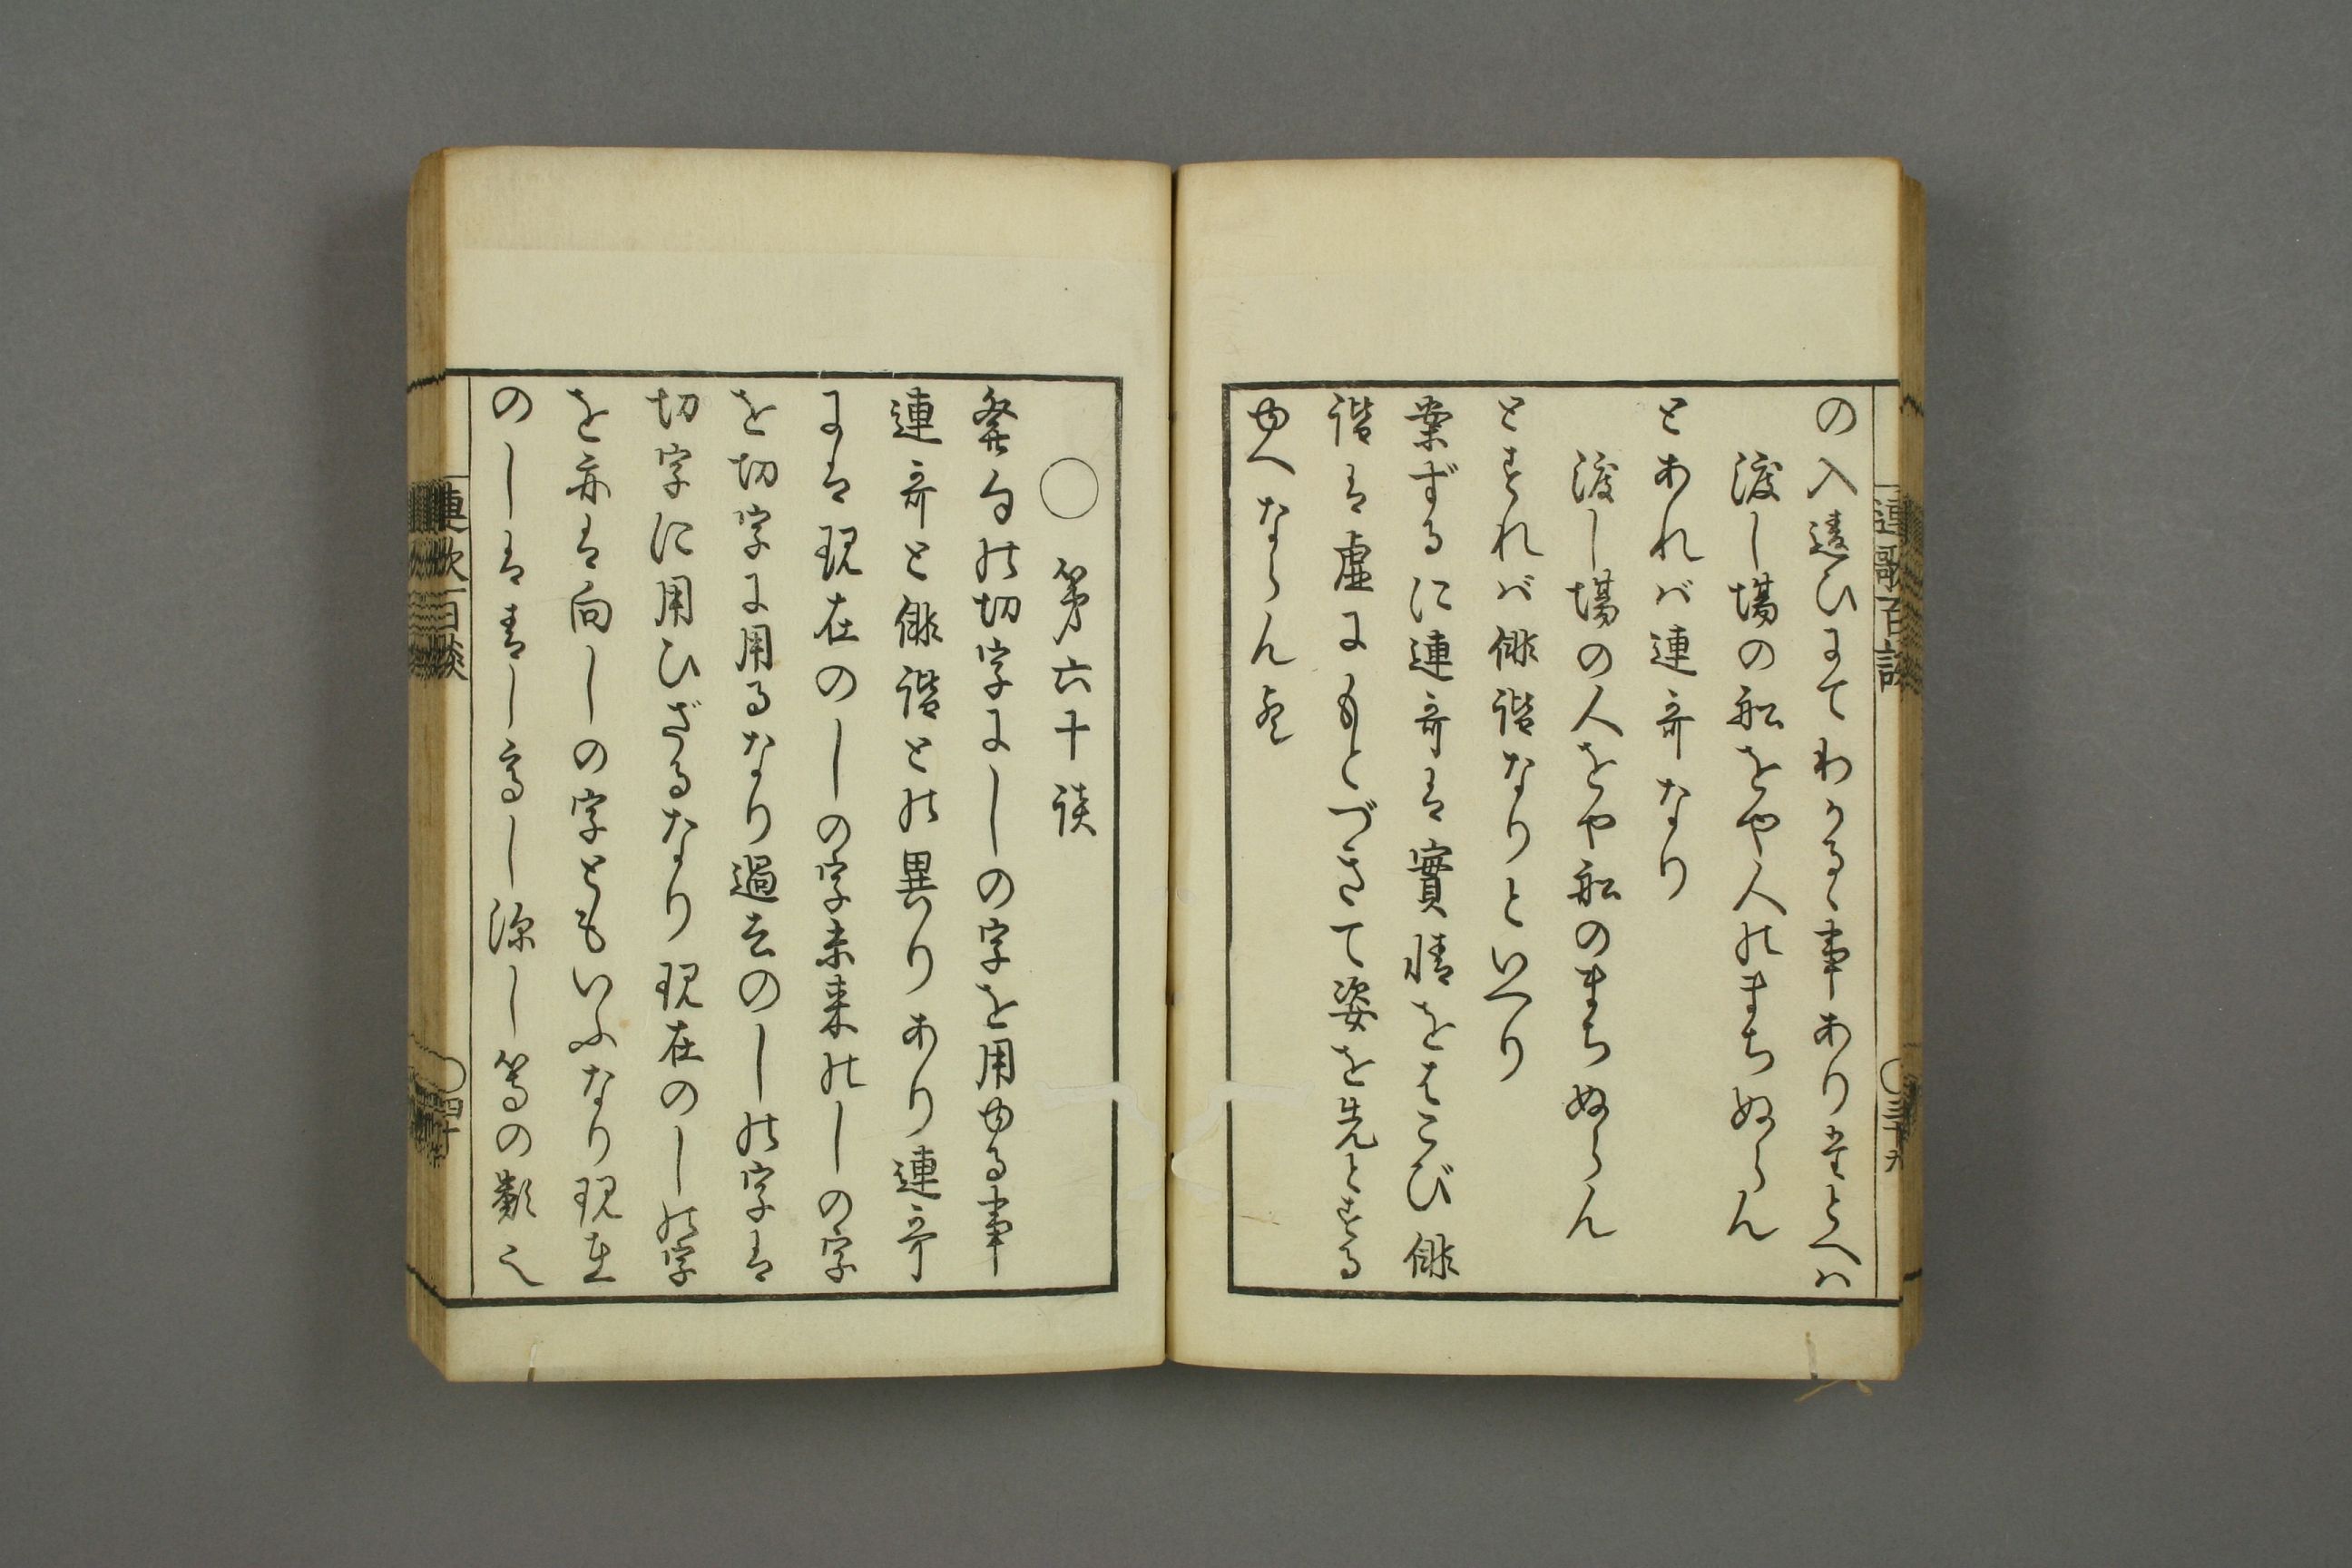 連歌百談
〇三十九
の入違ひにてわかるゝ事ありたとへハ
渡し場の船をや人のまちぬらん
とあれバ連哥なり
渡し場の人をや船のまちぬらん
とすれバ俳諧なりといへり
案ずるに連哥は實情をはこび俳
諧は虚にもとづきて姿を先とする
ゆへならん歟
〇第六十談
発句の切字にしの字を用ゆる事
連哥と俳諧との異りあり連哥
には現在のしの字未来のしの字
を切字に用るなり過去のしの字は
切字に用ひざるなり現在のしの字
を亦は向しの字ともいふなり現在
のしは青し高し深し等の類也
連歌百談
〇四十